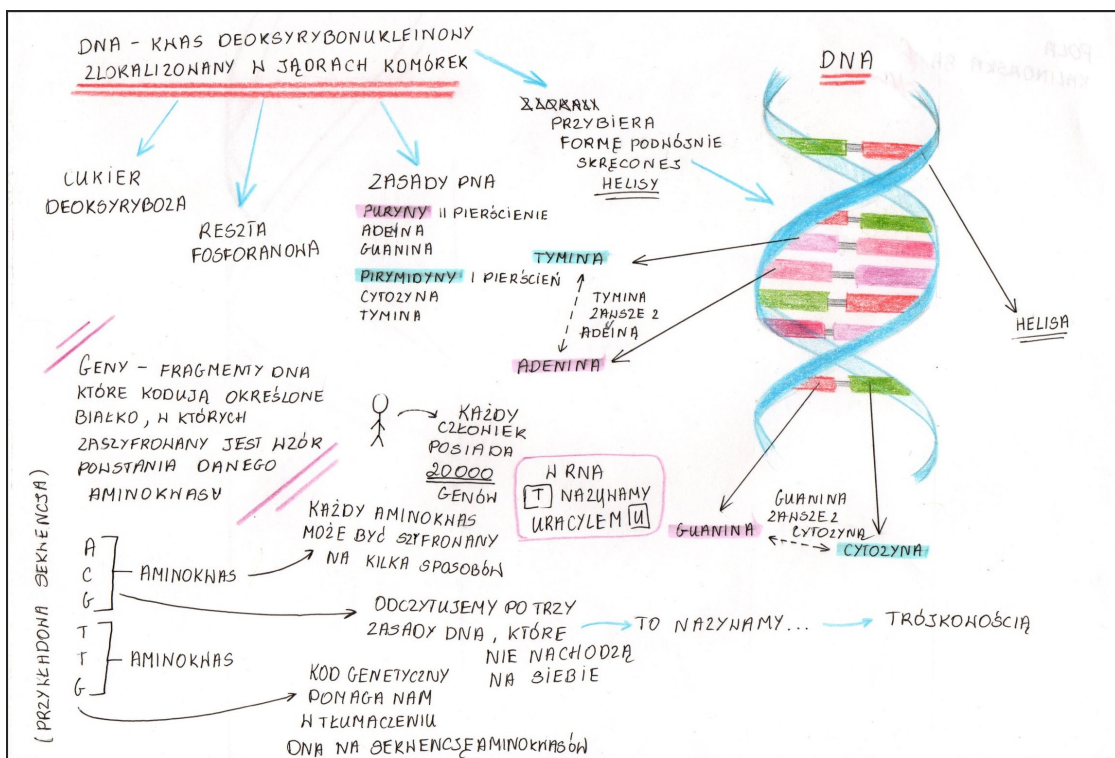 DNA - KWAS DEOKSYRYBONUKLEINOWY
ZLOKALIZOWANY W JĄDRACH KOMÓREK
CUKIER
DEOKSYRYBOZA
RESZTA
FOSFORANOWA
ZASADY DNA
PURYNY II PIERŚCIENIE
ADEINA
GUANINA
PIRYMIDYNY I PIERŚCIEŃ
CYTOZYNA
TYMINA
PRZYBIERA
FORMĘ PODWÓJNIE
SKRĘCONEJ
HELISY
DNA
TYMINA
TYMINA
ZAWSZE Z
ADEINĄ
ADENINA
HELISA
GENY - FRAGMENTY DNA
KTÓRE KODUJĄ OKREŚLONE
BIAŁKO, W KTÓRYCH
ZASZYFROWANY JEST WZÓR
POWSTANIA DANEGO
AMINOKWASU
KAŻDY
CZŁOWIEK
POSIADA
20000
GENÓW
W RNA
T NAZYWAMY
URACYLEM U
GUANINA
GUANINA
ZAWSZE Z
CYTOZYNĄ
CYTOZYNA
(PRZYKŁADOWA SEKWENCJA)
A
C
G
AMINOKWAS
T
T
G
AMINOKWAS
KAŻDY AMINOKWAS
MOŻE BYĆ SZYFROWANY
NA KILKA SPOSOBÓW
ODCZYTUJEMY PO TRZY
ZASADY DNA, KTÓRE
NIE NACHODZĄ
NA SIEBIE
TO NAZYWAMY...
TRÓJKOWOŚCIĄ
KOD GENETYCZNY
POMAGA NAM
W TŁUMACZENIU
DNA NA SEKWENCJĘ AMINOKWASÓW